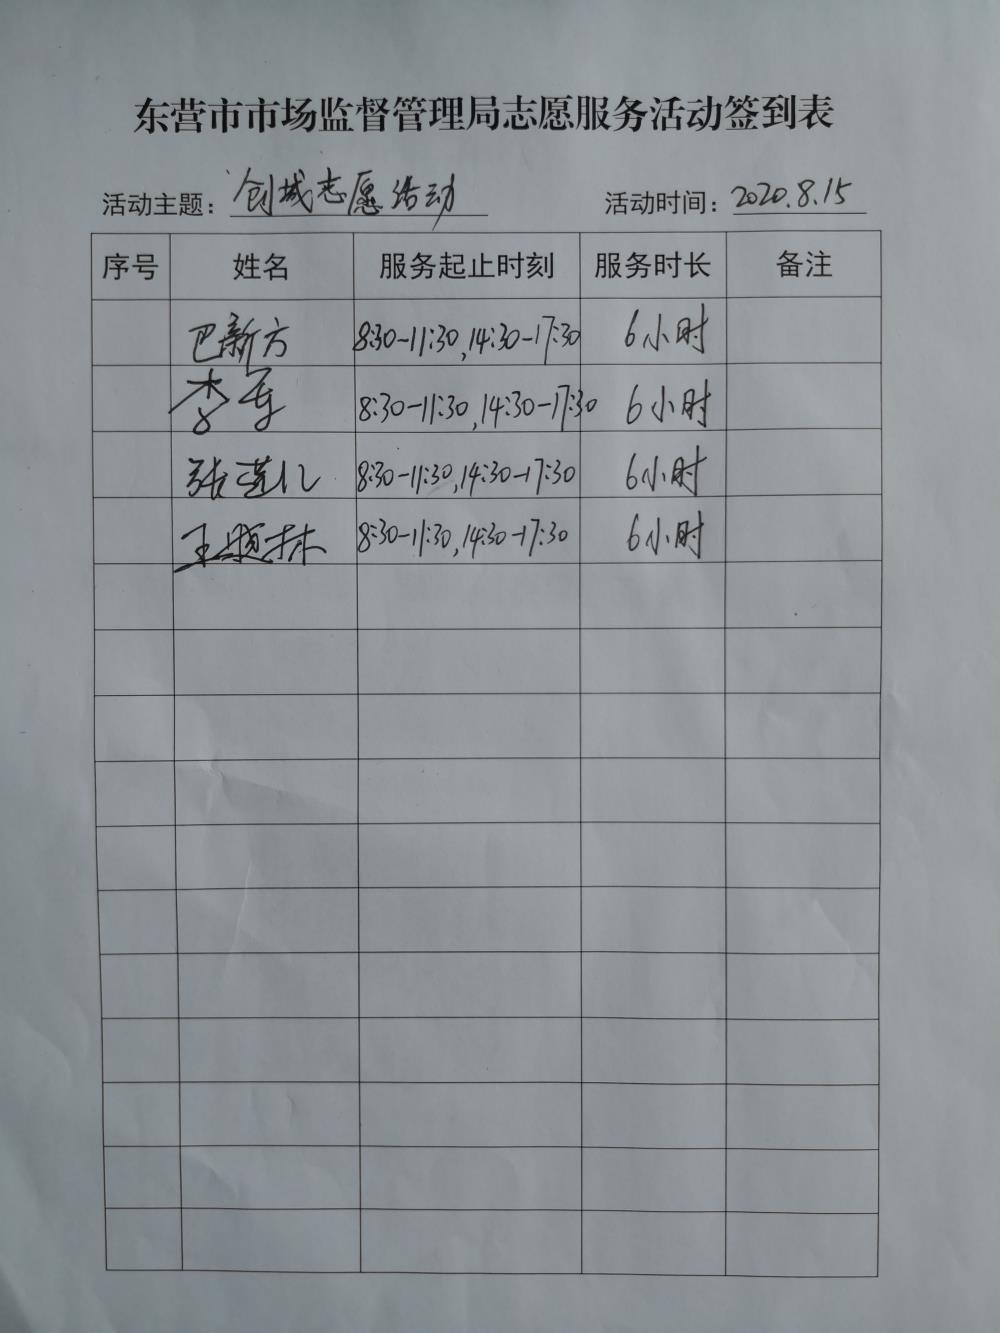 东营市市场监督管理局志愿服务活动签到表
活动主题：创城志愿活动 活动时间：2020.8.15
序号 姓名 服务起止时刻 服务时长 备注
巴新方 8:30-11:30,14:30-17:30 6小时
李 8:30-11:30,14:30-17:30 6小时
张莲儿 8:30-11:30,14:30-17:30 6小时
王 林 8:30-11:30,14:30-17:30 6小时